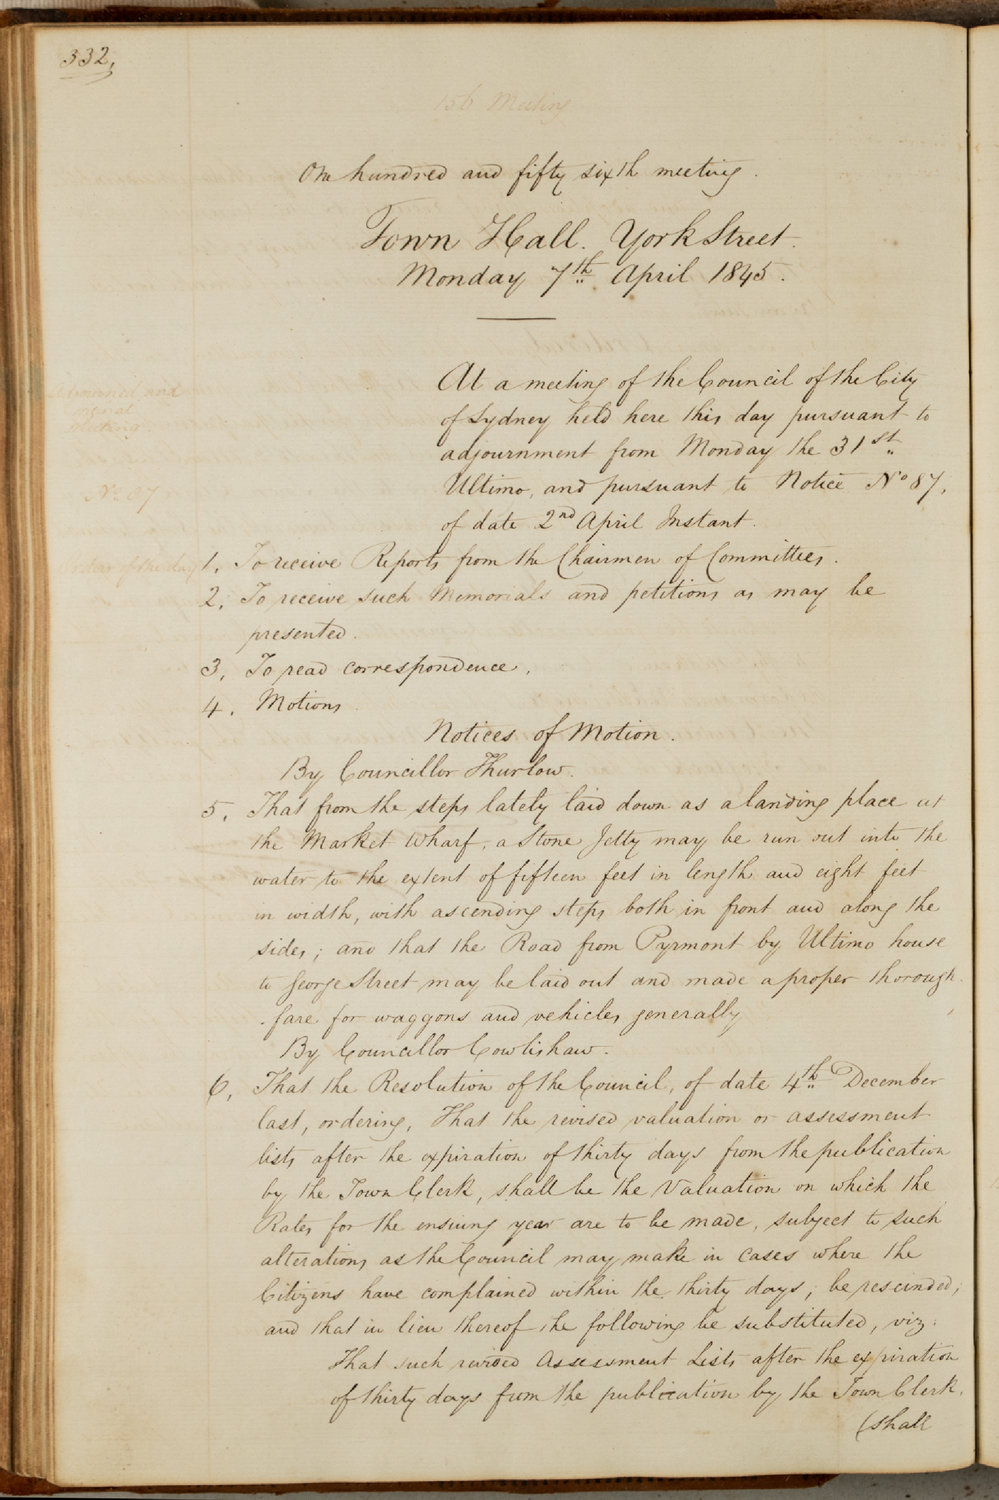 332,
156 Meeting
One hundred and fifty sixth meeting.
Town Hall. York Street.
Monday 7th April 1845.
Adjourned and
special
Meeting
No 87
Order of the day
At a meeting of the Council of the City
of Sydney held here this day pursuant to
adjournment from Monday the 31st
Ultimo, and pursuant to Notice No 87,
of date 2nd April Instant.
1, To receive Reports from the Chairmen of Committees.
2, To receive such Memorials and petitions as may be
presented.
3, To read correspondence,
4, Motions.
Notices of Motion.
By Councillor Thurlow.
5, That from the steps lately laid down as a landing place at
the Market Wharf, a Stone Jetty may be run out into the
water to the extent of fifteen feet in length and eight feet
in width, with ascending steps both in front and along the
sides; and that the Road from Pyrmont by Ultimo house
to George Street may be laid out and made a proper thorough-
-fare for waggons and vehicles generally
By Councillor Cowlishaw.
6, That the Resolution of the Council, of date 4th December
last, ordering, That the revised valuation or assessment
lists after the expiration of thirty days from the publication
by the Town Clerk, shall be the Valuation on which the
Rates for the ensuing year are to be made, subject to such
alterations as the Council may make in cases where the
Citizens have complained within the thirty days; be rescinded;
and that in lieu thereof the following be substituted, viz:
That such revised Assessment Lists after the expiration
of thirty days from the publication by the Town Clerk,
(shall